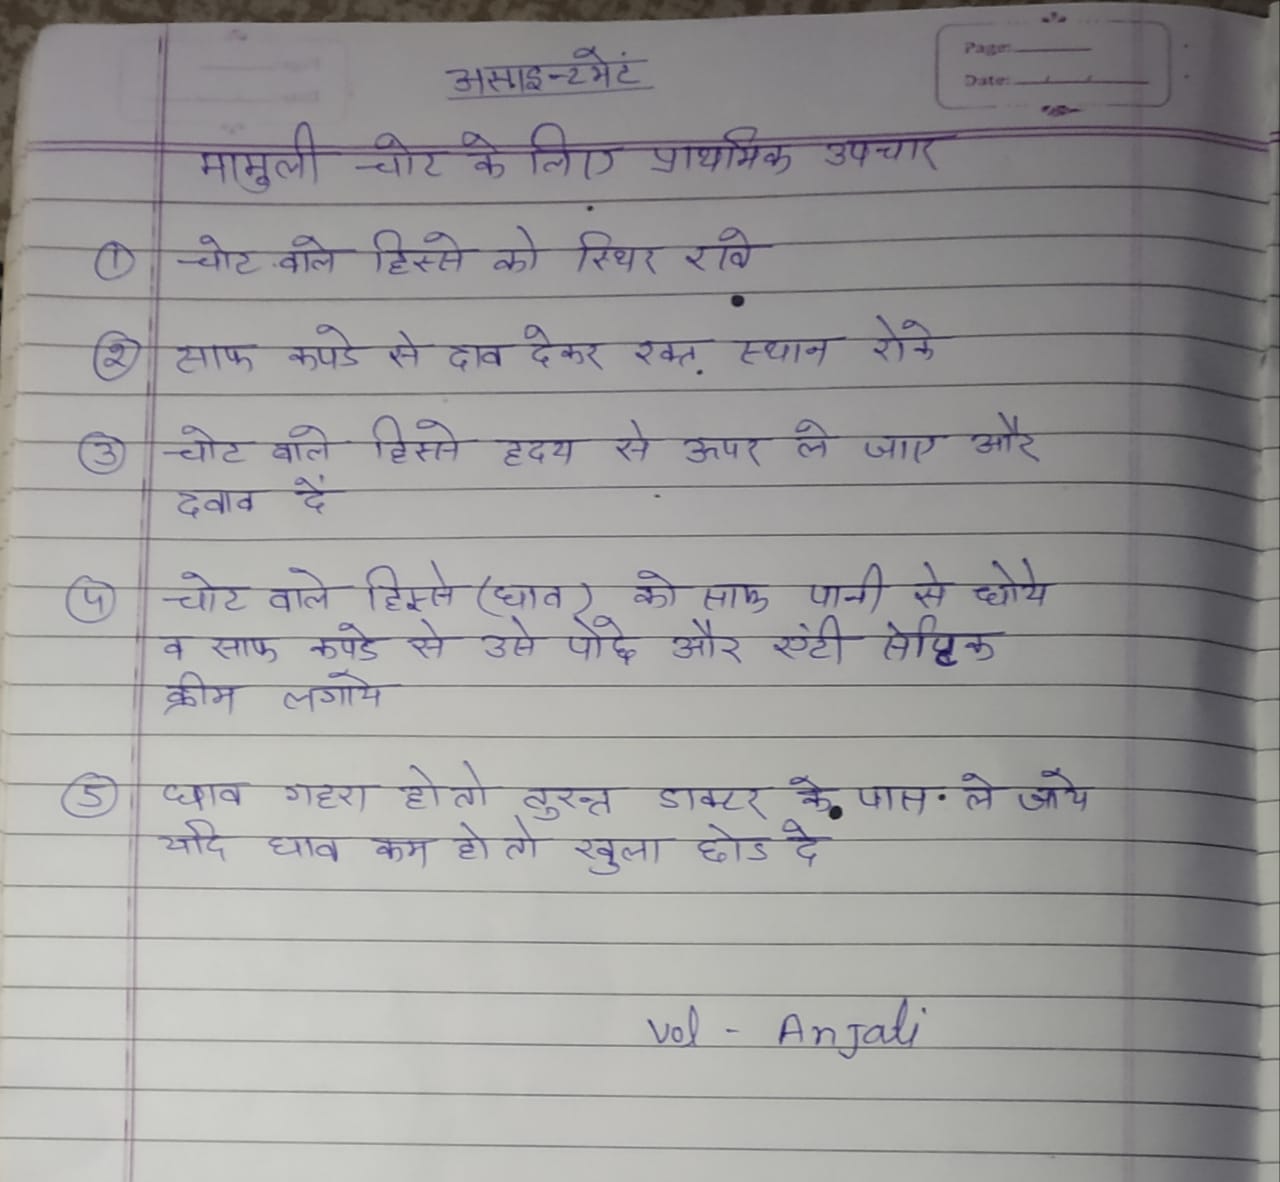 असाइन्टमेटं
Page:
Date:
मामुली चोट के लिए प्राथमिक उपचार
① चोट वाले हिस्से को स्थिर रखे
② साफ कपडे से दाव देकर रक्त स्थान रोके
③ चोट वाले हिस्से हृदय से ऊपर ले जाए और
दवाव दें
④ चोट वाले हिस्से (घाव) को साफ पानी से धोये
व साफ कपडे से उसे पोछे और एंटी सेप्टिक
क्रीम लगाये
⑤ घाव गहरा हो तो तुरन्त डाक्टर के पास ले जाये
यदि घाव कम हो तो खुला छोड दे
Vol - Anjali